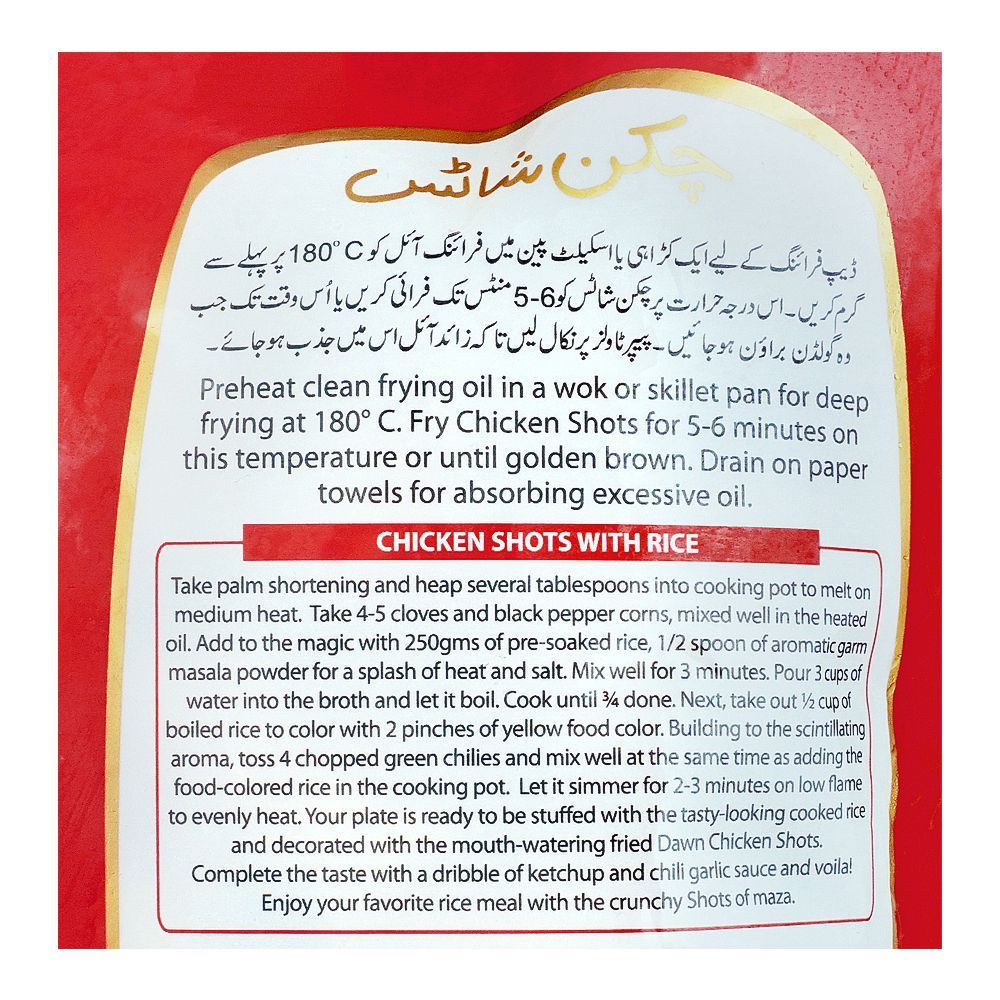 چکن شاٹس
ڈیپ فرائنگ کے لیے ایک کڑاہی یا اسکیلٹ پین میں فرائنگ آئل کو 180° C پر پہلے سے
گرم کریں۔ اس درجہ حرارت پر چکن شاٹس کو 5-6 منٹس تک فرائی کریں یا اُس وقت تک جب
وہ گولڈن براؤن ہوجائیں۔ پیپر ٹاولز پر نکال لیں تاکہ زائد آئل اس میں جذب ہوجائے۔
Preheat clean frying oil in a wok or skillet pan for deep
frying at 180° C. Fry Chicken Shots for 5-6 minutes on
this temperature or until golden brown. Drain on paper
towels for absorbing excessive oil.
CHICKEN SHOTS WITH RICE
Take palm shortening and heap several tablespoons into cooking pot to melt on
medium heat. Take 4-5 cloves and black pepper corns, mixed well in the heated
oil. Add to the magic with 250gms of pre-soaked rice, 1/2 spoon of aromatic garm
masala powder for a splash of heat and salt. Mix well for 3 minutes. Pour 3 cups of
water into the broth and let it boil. Cook until ¾ done. Next, take out ½ cup of
boiled rice to color with 2 pinches of yellow food color. Building to the scintillating
aroma, toss 4 chopped green chilies and mix well at the same time as adding the
food-colored rice in the cooking pot. Let it simmer for 2-3 minutes on low flame
to evenly heat. Your plate is ready to be stuffed with the tasty-looking cooked rice
and decorated with the mouth-watering fried Dawn Chicken Shots.
Complete the taste with a dribble of ketchup and chili garlic sauce and voila!
Enjoy your favorite rice meal with the crunchy Shots of maza.